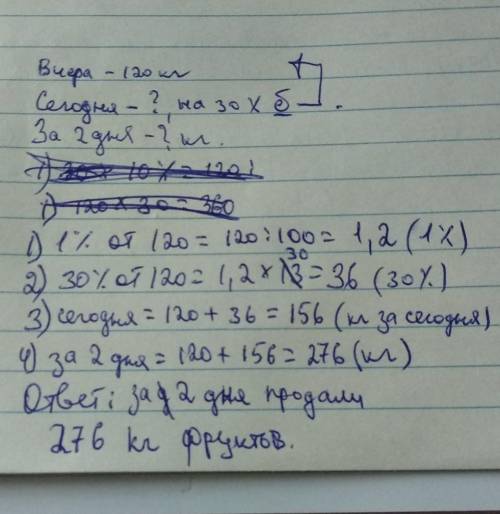 Вчера - 120 кг
Сегодня - ?, на 30 % б.
За 2 дня - ? кг.
1) 1% от 120 = 120:100 = 1,2 (1%)
2) 30% от 120 = 1,2 × 30 = 36 (30%)
3) сегодня = 120 + 36 = 156 (кг за сегодня)
4) за 2 дня = 120 + 156 = 276 (кг)
Ответ: за 2 дня продали
276 кг фруктов.